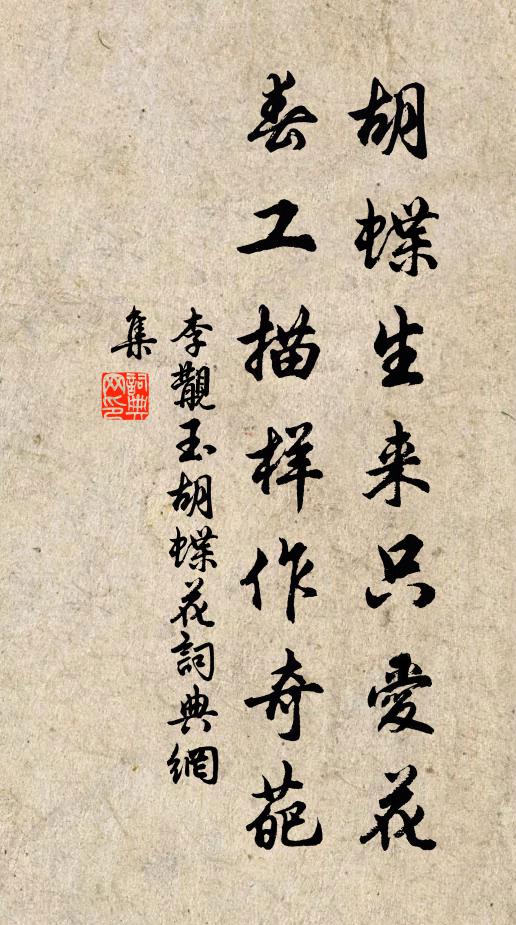 胡蝶生来只愛花
春工描样作奇葩
李觀玉胡蝶花詞典網
集
詞典
网印